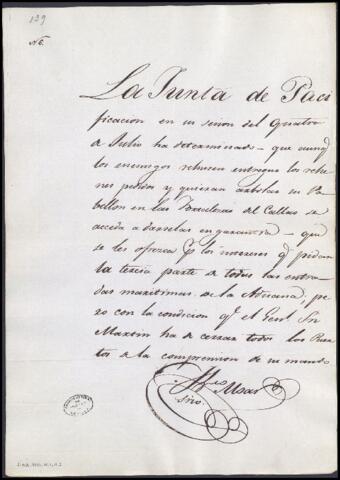 139
Nº.
La Junta de Paci
ficacion en su sesion del quatro
de Julio ha determinado – que aunq̃
los enemigos rehusen entregar los rehe
nes pedidos y quieran arbolar su Pa
bellon en las Fortalezas del Callao se
acceda a darselas en garantia – que
se les ofrezca p los intereses q̃ pidan
la tercia parte de todas las entra
das maritimas de la Aduana; pe
ro con la condicion q.e el Gen.l Sn
Martin ha de cerrar todos los Puer
tos de la comprension de su mando
Moar
Srio.